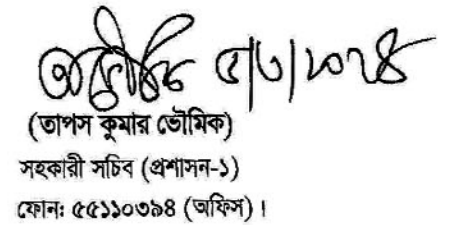 ৫|৩|২০২৪
(তাপস কুমার ভৌমিক)
সহকারী সচিব (প্রশাসন-১)
ফোনঃ ৫৫১১০৩৯৪ (অফিস) ।